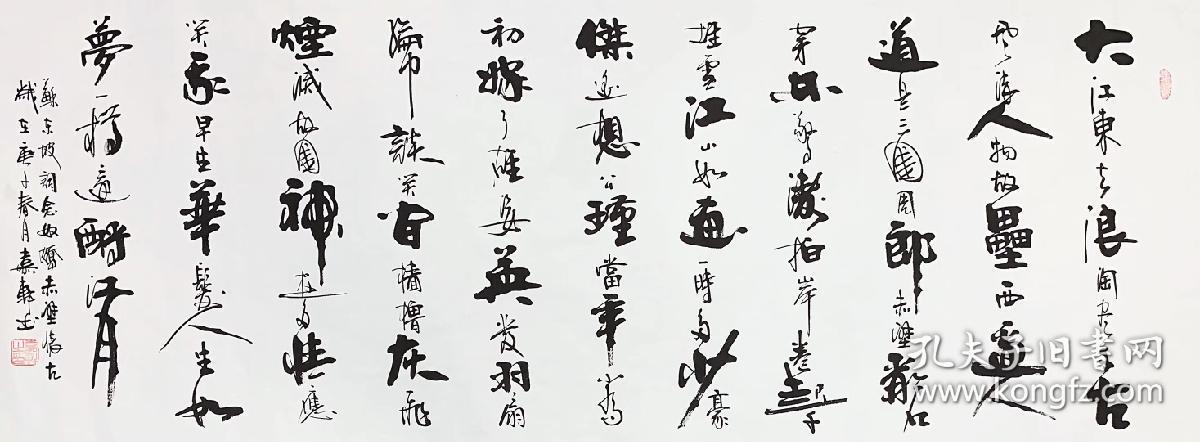 大江東去浪淘盡千古
風流人物故壘西邊人
道是三國周郎赤壁亂石
穿空驚濤拍岸捲起千
堆雪江山如畫一時多少豪
傑遙想公瑾當年小喬
初嫁了雄姿英發羽扇
綸巾談笑間檣櫓灰飛
煙滅故國神遊多情應
笑我早生華髮人生如
夢一樽還酹江月
蘇東坡詞念奴嬌赤壁懷古
歲在庚子春月
孔夫子旧书网
www.kongfz.com